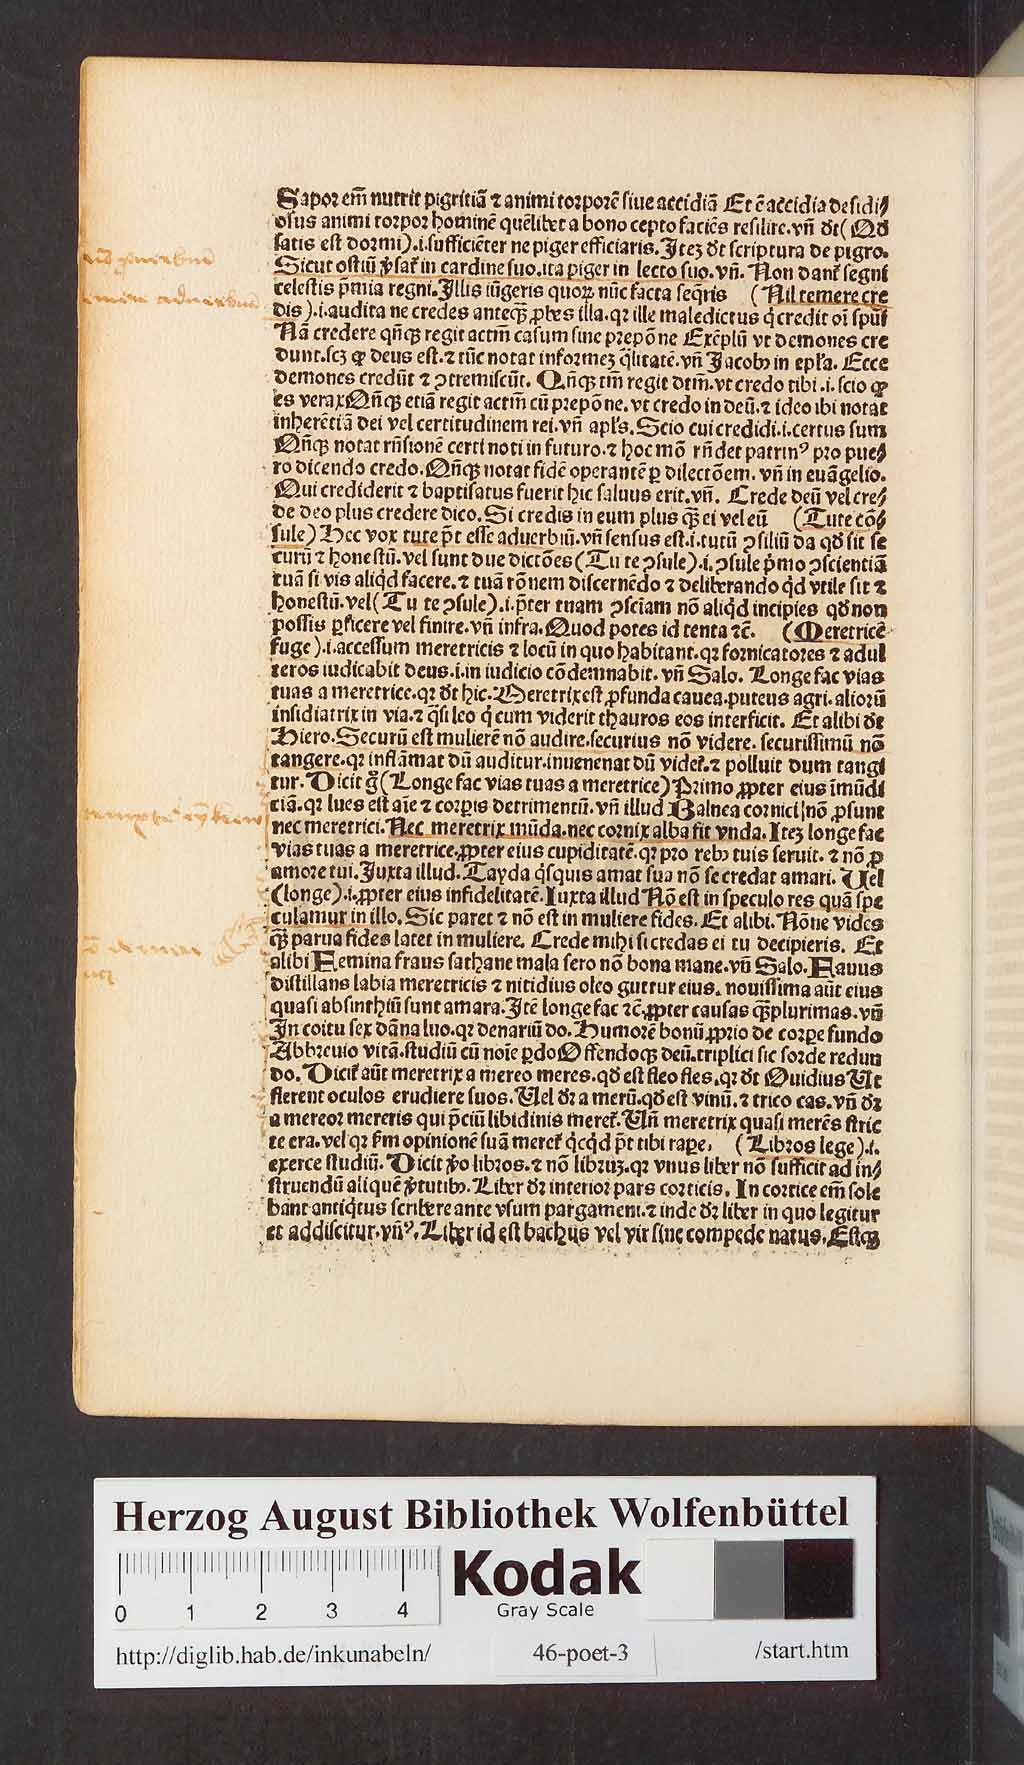 Sapor em̃ nutrit pigritiã ⁊ animi torporẽ siue accidiã Et ẽ accidia desidi/
osus animi torpor hominẽ quẽlibet a bono cepto faciẽs resilire. vñ dt (Qd
satis est dormi).i.sufficiẽter ne piger efficiaris. Itez dt scriptura de pigro.
Sicut ostiũ v̾sat᷑ in cardine suo. ita piger in lecto suo. vñ. Non dant᷑ segni
celestis p̃mia regni. Illis iũgeris quoꝝ nũc facta seq̃ris (Nil temere cre
dis).i.audita ne credes anteq̃ꝫ ꝓbes illa. qꝛ ille maledictus q̇ credit oĩ spũi
Nã credere qñqꝫ regit actm̃ casum sine prepõne Exẽplũ vt demones cre
dunt. scꝫ ꝙ deus est. ⁊ tũc notat informeꝫ q̃litatẽ. vñ Jacobꝰ in epl'a. Ecce
demones credũt ⁊ ꝯtremiscũt. Qñqꝫ tm̃ regit dtm̃. vt credo tibi .i. scio ꝙ
es verax Qñqꝫ etiã regit actm̃ cũ prepõne. vt credo in deũ. ⁊ ideo ibi notat
inherẽtiã dei vel certitudinem rei. vñ apl's. Scio cui credidi.i.certus sum
Qñqꝫ notat rñsionẽ certi noti in futuro. ⁊ hoc mõ rñdet patrinꝰ pro pue/
ro dicendo credo. Qñqꝫ notat fidẽ operantẽ ꝑ dilectõem. vñ in euãgelio.
Qui crediderit ⁊ baptisatus fuerit hic saluus erit. vñ. Crede deũ vel cre/
de deo plus credere dico. Si credis in eum plus q̃ꝫ ei vel eũ (Tute cõ/
sule) Hec vox tute põt esse aduerbiũ. vñ sensus est.i.tutũ ꝯsiliũ da qd sit se
curũ ⁊ honestũ. vel sunt due dictões (Tu te ꝯsule).i.ꝯsule p̃mo ꝯscientiã
tuã si vis aliqd facere. ⁊ tuã rõnem discernẽdo ⁊ deliberando qd vtile sit ⁊
honestũ. vel (Tu te ꝯsule).i.p̃ter tuam ꝯsciam nõ aliqd incipies qd non
possis ꝑficere vel finire. vñ infra. Quod potes id tenta ⁊c̃. (Meretricẽ
fuge).i.accessum meretricis ⁊ locũ in quo habitant. qꝛ fornicatores ⁊ adul
teros iudicabit deus.i.in iudicio cõdemnabit. vñ Salo. Longe fac vias
tuas a meretrice. qꝛ dt hic. Meretrix est ꝓfunda cauea. puteus agri. aliorũ
insidiatrix in via. ⁊ q̃si leo q̇ cum viderit thauros eos interficit. Et alibi dt
Hiero. Securũ est mulierẽ nõ audire. securius nõ videre. securissimũ nõ
tangere. qꝛ inflãmat dũ auditur. inuenenat dũ videt᷑. ⁊ polluit dum tangi
tur. Dicit g̊ (Longe fac vias tuas a meretrice) Primo ꝓpter eius ĩmũdi
ciã. qꝛ lues est aĩe ⁊ corꝑis detrimentũ. vñ illud Balnea cornici nõ ꝓsunt
nec meretrici. Nec meretrix mũda. nec cornix alba fit vnda. Itez longe fac
vias tuas a meretrice. ꝓpter eius cupiditatẽ. qꝛ pro rebꝰ tuis seruit. ⁊ nõ ꝑ
amore tui. Juxta illud. Tayda q̇squis amat sua nõ se credat amari. Vel
(longe).i.ꝓpter eius infidelitatẽ. Juxta illud Nõ est in speculo res quã spe
culamur in illo. Sic paret ⁊ nõ est in muliere fides. Et alibi. Nõne vides
q̃ꝫ parua fides latet in muliere. Crede mihi si credas ei tu decipieris. Et
alibi Femina fraus sathane mala sero nõ bona mane. vñ Salo. Fauus
distillans labia meretricis ⁊ nitidius oleo guttur eius. nouissima aũt eius
quasi absinthiũ sunt amara. Itẽ longe fac ⁊c̃. ꝓpter causas q̃ꝫplurimas. vñ
In coitu sex dãna luo. qꝛ denariũ do. Humorẽ bonũ ꝓprio de corꝑe fundo
Abbreuio vitã. studiũ cũ noĩe ꝑdo Offendoqꝫ deũ. triplici sic sorde redun
do. Dicit᷑ aũt meretrix a mereo meres. qd est fleo fles. qꝛ dt Ouidius Ut
flerent oculos erudiere suos. Vel dꝛ a merũ. qd est vinũ. ⁊ trico cas. vñ dꝛ
a mereor mereris qui p̃ciũ libidinis meret᷑. Uñ meretrix quasi merẽs stric
te era. vel qꝛ fm̃ opinionẽ suã meret᷑ qcqd põt tibi raꝑe. (Libros lege).i.
exerce studiũ. Dicit v̾o libros. ⁊ nõ librũꝫ. qꝛ vnus liber nõ sufficit ad in/
struendũ aliquẽ v̾tutibꝰ. Liber dꝛ interior pars corticis. In cortice em̃ sole
bant antiq̇tus scribere ante vsum pargameni. ⁊ inde dꝛ liber in quo legitur
et addiscitur. vñꝰ. Liber id est bachus vel vir sine compede natus. Estqꝫ
Herzog August Bibliothek Wolfenbüttel
0 1 2 3 4
Kodak
Gray Scale
http://diglib.hab.de/inkunabeln/ 46-poet-3 /start.htm